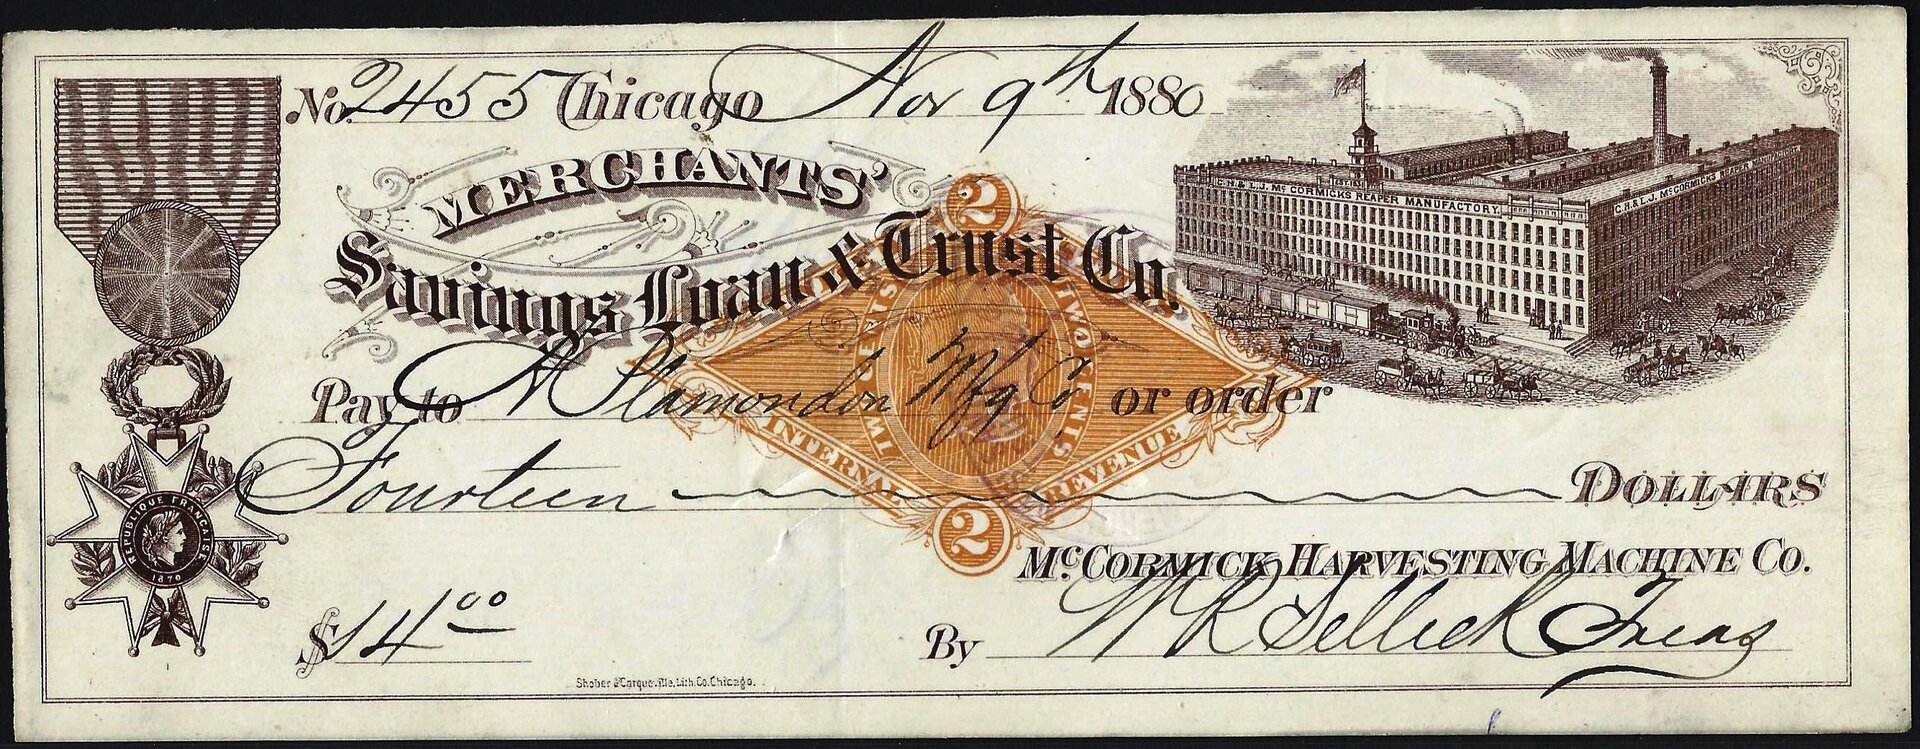 No. 2455 Chicago Nov 9th 1880
MERCHANTS'
Savings Loan & Trust Co.
Pay to A Plamondon Mfg Co or order
Fourteen DOLLARS
McCORMICK HARVESTING MACHINE Co.
$14 00
By W R Sellick Treas
Shober & Carqueville Lith. Co. Chicago.
C.H. & L.J. McCORMICKS REAPER MANUFACTORY.
C.H. & L.J. McCORMICKS REAPER
2
TWO CENTS
INTERNAL REVENUE
2
REPUBLIQUE FRANCAISE
1870